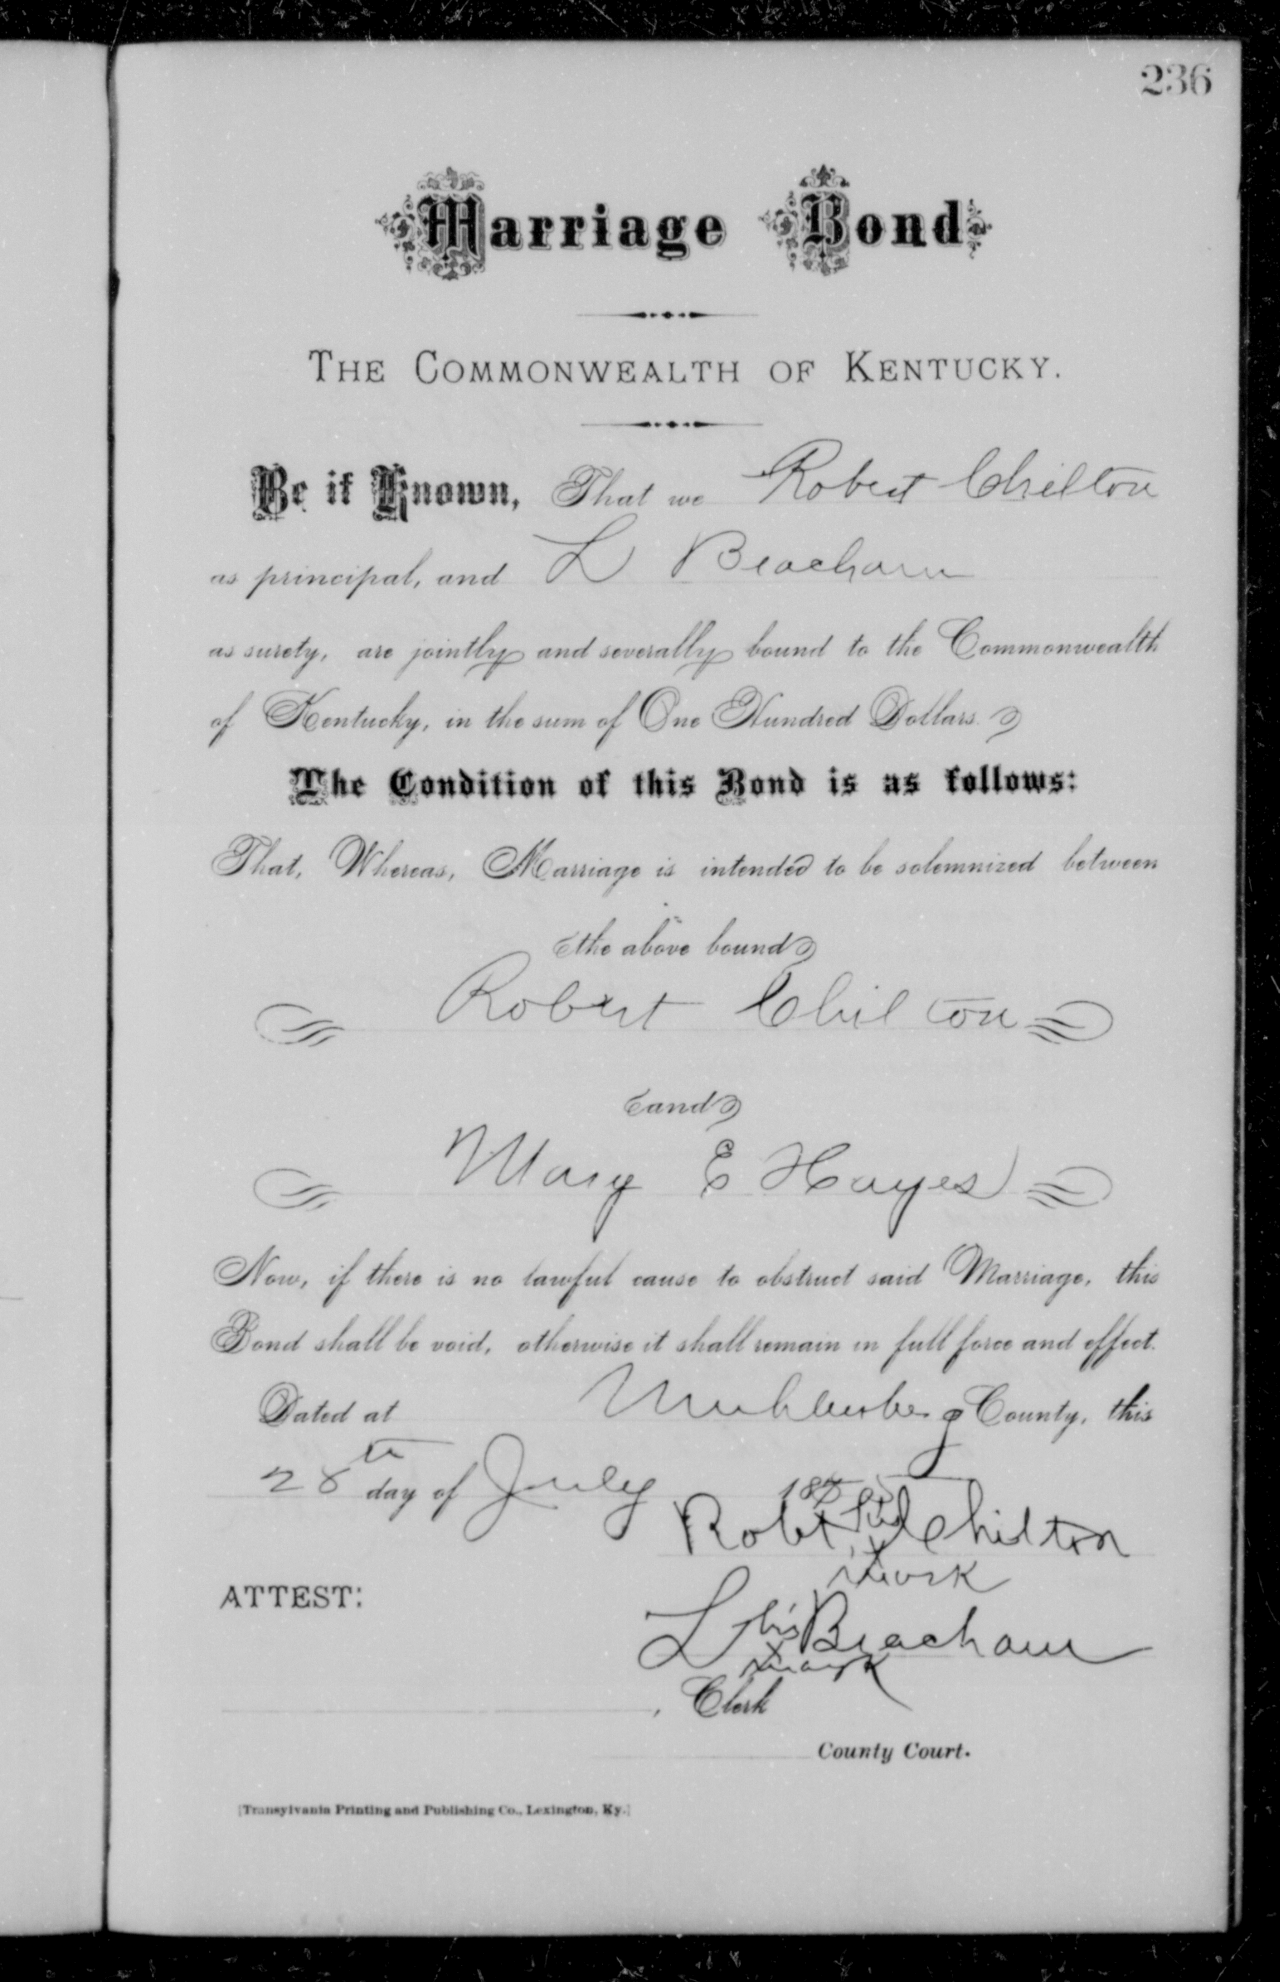 236
Marriage Bond
THE COMMONWEALTH OF KENTUCKY.
Be it Known, That we Robert Chilton
as principal, and L Beacham
as surety, are jointly and severally bound to the Commonwealth
of Kentucky, in the sum of One Hundred Dollars.
The Condition of this Bond is as follows:
That, Whereas, Marriage is intended to be solemnized between
the above bound
Robert Chilton
and
Mary E Hayes
Now, if there is no lawful cause to obstruct said Marriage, this
Bond shall be void, otherwise it shall remain in full force and effect.
Dated at Muhlenberg County, this
28th day of July
Robt his Chilton
x
mark
ATTEST:
L his Beacham
x
mark
, Clerk
County Court.
[Transylvania Printing and Publishing Co., Lexington, Ky.]